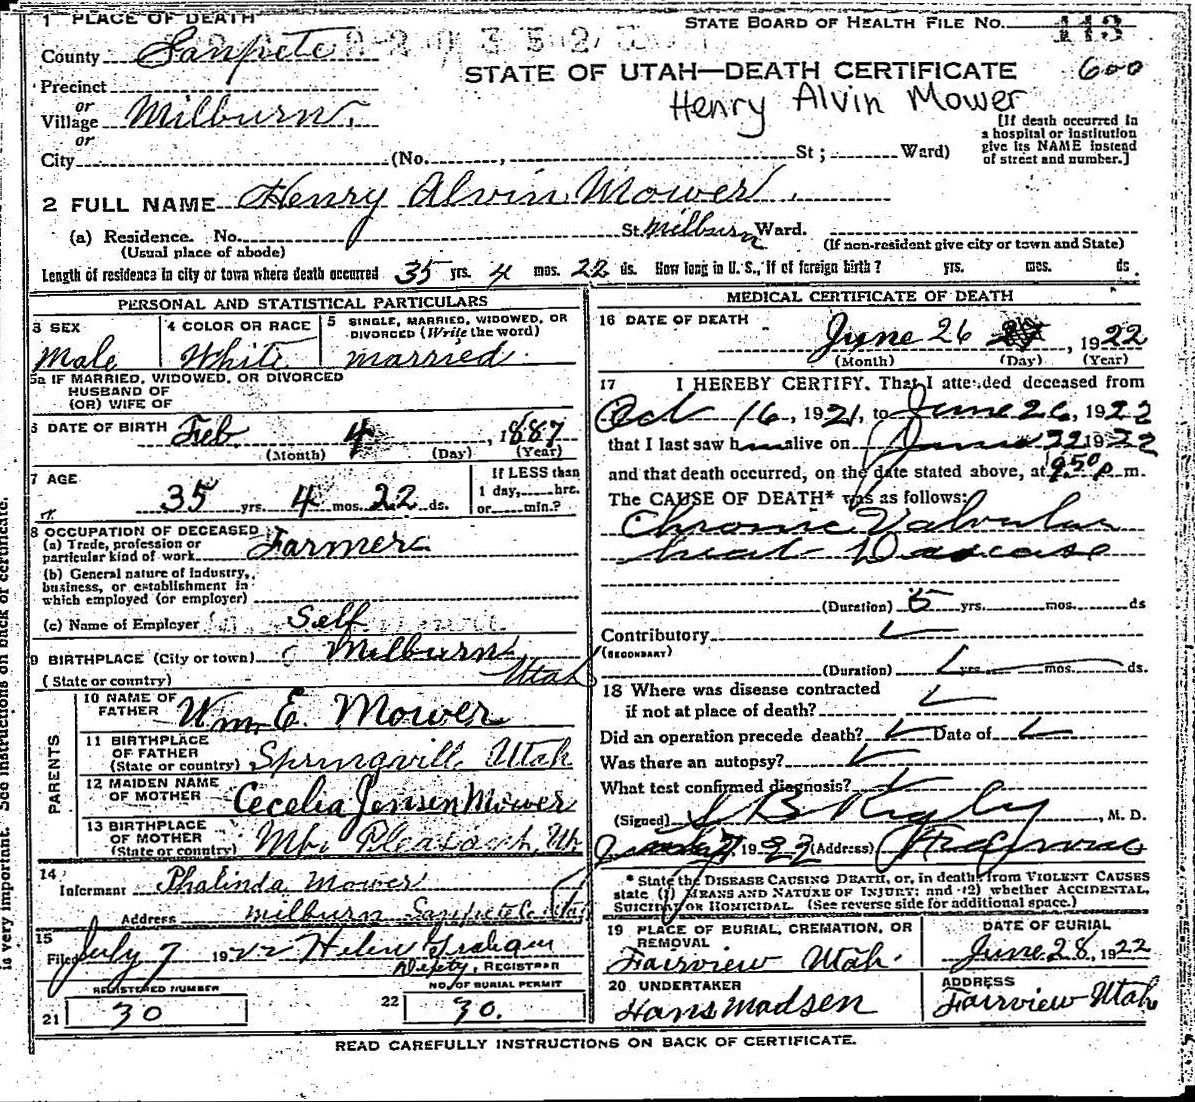 1 PLACE OF DEATH
STATE BOARD OF HEALTH FILE No. 113
County Sanpete
STATE OF UTAH—DEATH CERTIFICATE 600
Precinct
or
Village Milburn.
Henry Alvin Mower
[If death occurred in
a hospital or institution
give its NAME instead
of street and number.]
or
City (No. , St ; Ward)
2 FULL NAME Henry Alvin Mower
(a) Residence. No. St. Milburn Ward.
(Usual place of abode) (If non-resident give city or town and State)
Length of residence in city or town where death occurred 35 yrs. 4 mos. 22 ds. How long in U. S., if of foreign birth? yrs. mos. ds.
PERSONAL AND STATISTICAL PARTICULARS
3 SEX Male
4 COLOR OR RACE White
5 SINGLE, MARRIED, WIDOWED, OR
DIVORCED (Write the word)
married
5a IF MARRIED, WIDOWED, OR DIVORCED
HUSBAND OF
(OR) WIFE OF
6 DATE OF BIRTH Feb 4, 1887
(Month) (Day) (Year)
7 AGE
35 yrs. 4 mos. 22 ds.
If LESS than
1 day,.....hrs.
or.....min.?
8 OCCUPATION OF DECEASED
(a) Trade, profession or
particular kind of work Farmer
(b) General nature of industry,
business, or establishment in
which employed (or employer)
(c) Name of Employer Self
9 BIRTHPLACE (City or town) Milburn
(State or country) Utah
PARENTS
10 NAME OF
FATHER Wm. E. Mower
11 BIRTHPLACE
OF FATHER
(State or country) Springville Utah
12 MAIDEN NAME
OF MOTHER Cecelia Jensen Mower
13 BIRTHPLACE
OF MOTHER
(State or country) Pleasant, Ut
14
Informant Phalinda Mower
Address Milburn Sanpete Co. Utah
15
Filed July 7 1922 Helen Graham
Deputy, REGISTRAR
REGISTERED NUMBER
21 30
NO. OF BURIAL PERMIT
22 30.
MEDICAL CERTIFICATE OF DEATH
16 DATE OF DEATH
June 26, 1922
(Month) (Day) (Year)
17 I HEREBY CERTIFY, That I attended deceased from
Oct 16, 1921, to June 26, 1922
that I last saw h alive on June 22 1922
and that death occurred, on the date stated above, at 9:50 p. m.
The CAUSE OF DEATH* was as follows:
Chronic Valvular
heart Disease
(Duration) 5 yrs. mos. ds
Contributory
(SECONDARY)
(Duration) yrs. mos. ds.
18 Where was disease contracted
if not at place of death?
Did an operation precede death? Date of
Was there an autopsy?
What test confirmed diagnosis?
(Signed) , M. D.
, 1922 (Address)
* State the DISEASE CAUSING DEATH, or, in deaths from VIOLENT CAUSES
state (1) MEANS AND NATURE OF INJURY; and (2) whether ACCIDENTAL,
SUICIDAL OR HOMICIDAL. (See reverse side for additional space.)
19 PLACE OF BURIAL, CREMATION, OR
REMOVAL
Fairview Utah.
DATE OF BURIAL
June 28, 1922
20 UNDERTAKER
Hans Madsen
ADDRESS
Fairview Utah
READ CAREFULLY INSTRUCTIONS ON BACK OF CERTIFICATE.
is very important. See instructions on back of certificate.